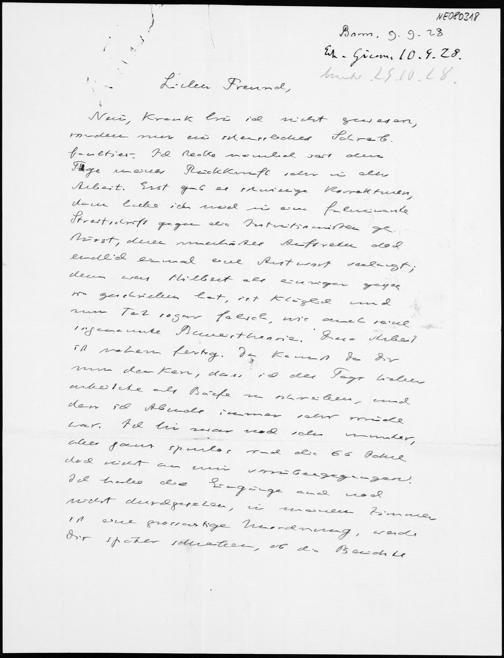 NE080218
Bonn, 9. 9. 28
10. 9. 28.
29.10.28.
Lieber Freund,
Nein, krank bin ich nicht gewesen,
sondern nur ein scheussliches Schreib-
faultier. Ich stecke nämlich seit dem
Tage meiner Rückkunft sehr in der
Arbeit. Erst gab es schwierige Korrekturen,
dann habe ich mich in eine fulminante
Streitschrift gegen die Intuitionisten ge-
stürzt, deren unerhörtes Auftreten doch
endlich einmal eine Antwort verlangt;
denn was Hilbert als einziger gegen
sie geschrieben hat, ist kläglich und
zum Teil sogar falsch, wie auch seine
sogenannte Beweistheorie. Diese Arbeit
ist nahezu fertig. Da kannst Du Dir
nun denken, dass ich des Tags lieber
arbeitete als Briefe zu schreiben, und
dass ich Abends immer sehr müde
war. Ich bin zwar noch sehr munter,
aber ganz spurlos sind die 60 Jahre
doch nicht an mir vorübergegangen.
Ich habe die Eingänge auch noch
nicht durchgesehen, in meinem Zimmer
ist eine grossartige Unordnung, werde
Dir später schreiben, ob die Berichte